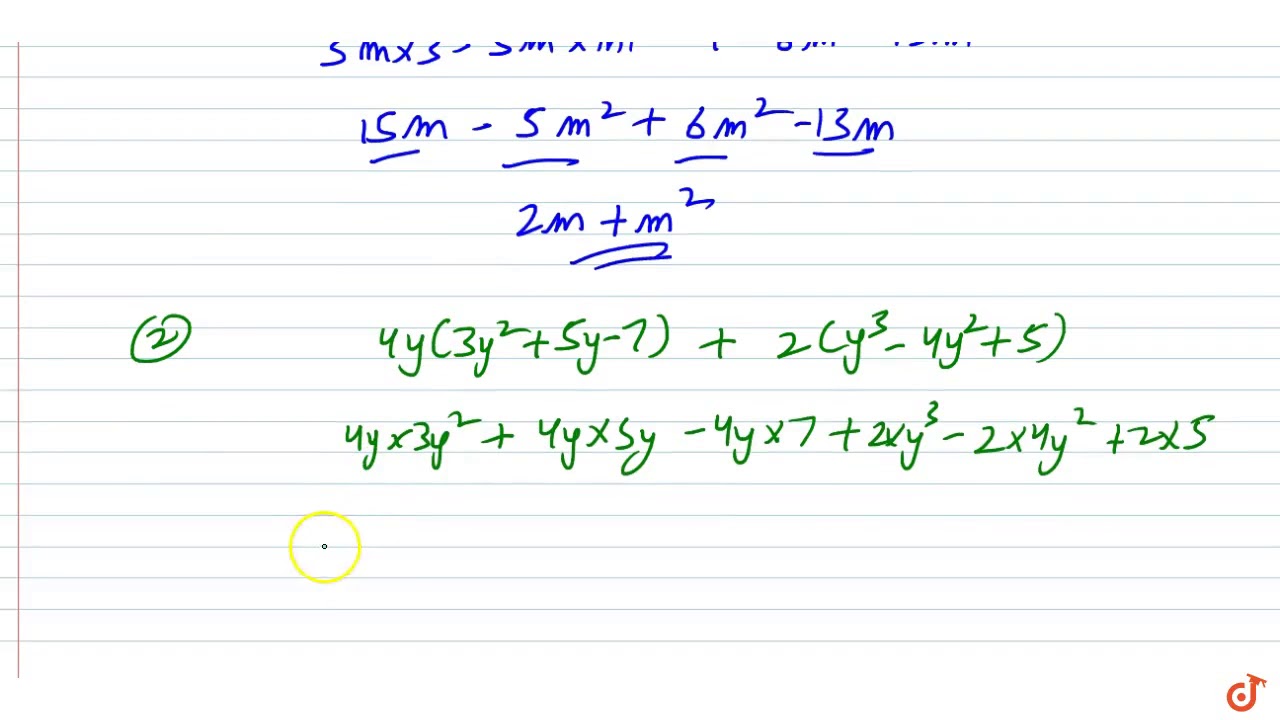 15m - 5m² + 6m² - 13m
2m + m²
② 4y(3y² + 5y - 7) + 2(y³ - 4y² + 5)
4y × 3y² + 4y × 5y - 4y × 7 + 2 × y³ - 2 × 4y² + 2 × 5